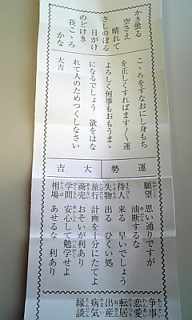 かき曇る
空さえ
晴れて
さしのぼる
日かげ
のどけき
我こゝろ
かな
大吉
こゝろをすなおにし身もち
を正しくすればますます運
よろしく何事もおもうまゝ
になるでしょう 欲をはな
れて人のためつくしなさい
運勢 大吉
願望 思い通りですが
油断するな
待人 来る 早いでしょう
失物 出る ひくい処
旅行 計画を十分にたてよ
商売 おそいが利あり
学問 安心して勉学せよ
相場 あせるな 利あり
争事
恋愛
転居
出産
病気
縁談